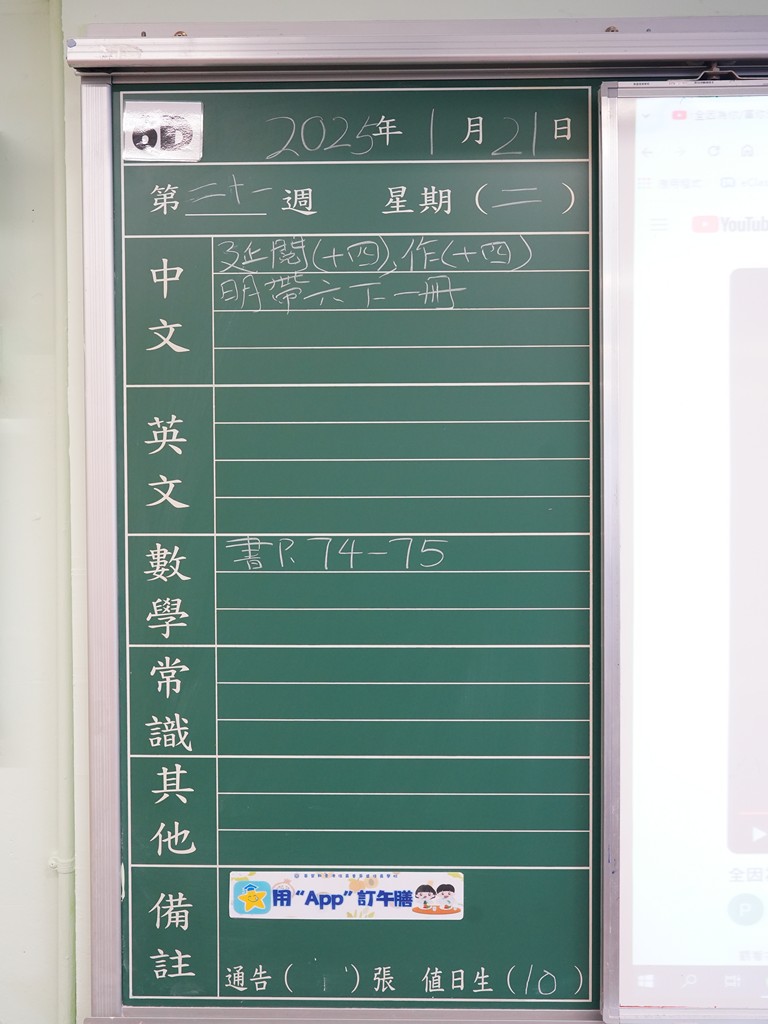 6D
2025年1月21日
第二十一週 星期（二）
中文
延閱(十四)、作(十四)
明帶六下一冊
英文
數學
書P. 74-75
常識
其他
備註
用“App”訂午膳
通告（ ）張 值日生（10）
YouTube